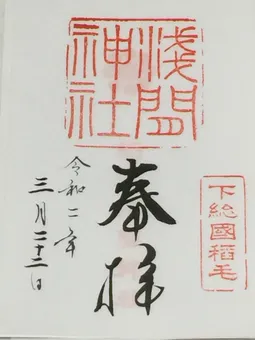 淺間
神社
奉拝
下総國稲毛
令和二年
三月二十二日